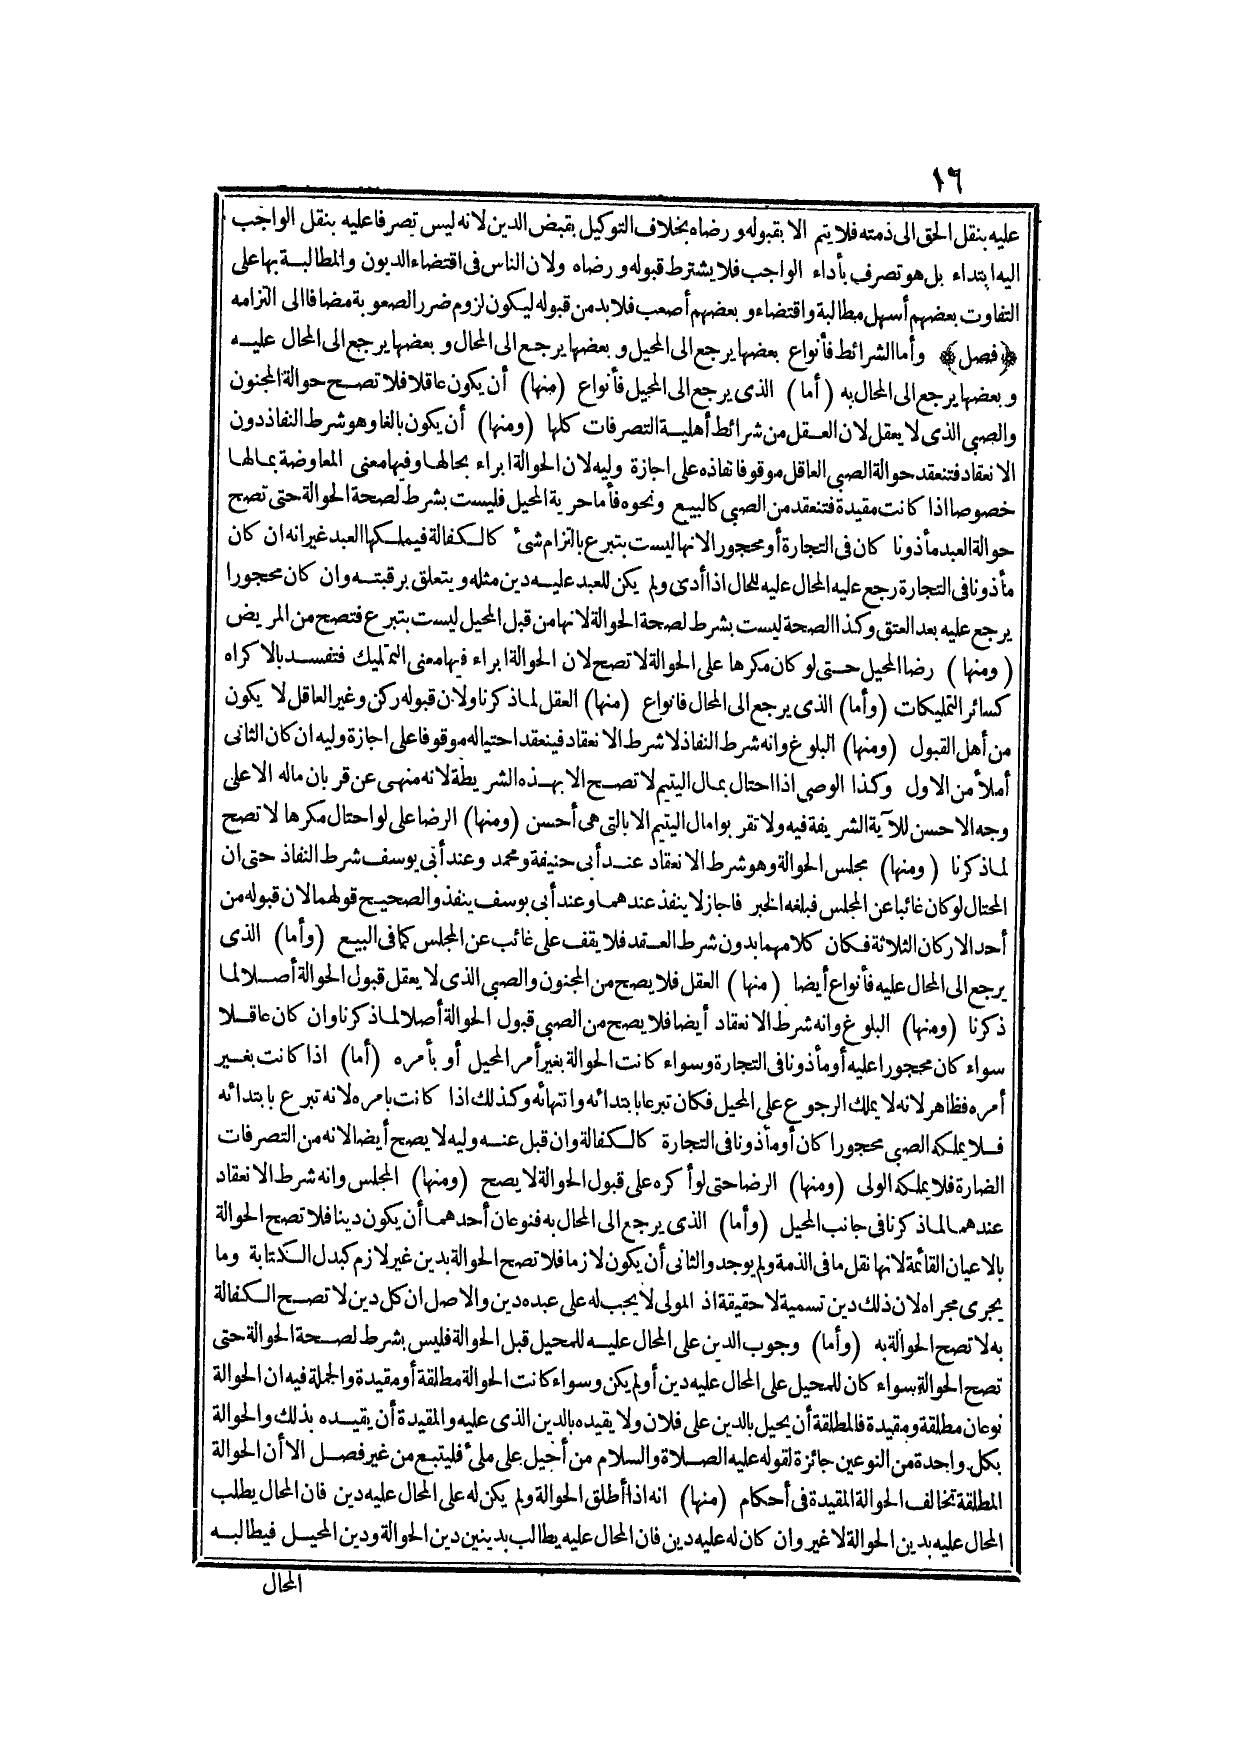 ١٦
عليه بنقل الحق الى ذمته فلا يتم الا بقبوله ورضاه بخلاف التوكيل بقبض الدين لانه ليس تصرفا عليه بنقل الواجب
اليه ابتداء بل هو تصرف بأداء الواجب فلا يشترط قبوله ورضاه ولان الناس فى اقتضاء الديون والمطالبة بها على
التفاوت بعضهم أسهل مطالبة واقتضاء وبعضهم أصعب فلا بد من قبوله ليكون لزوم ضرر الصعوبة مضافا الى التزامه
﴿فصل﴾ وأما الشرائط فأنواع بعضها يرجع الى المحيل وبعضها يرجع الى المحال وبعضها يرجع الى المحال عليه
وبعضها يرجع الى المحال به (أما) الذى يرجع الى المحيل فأنواع (منها) أن يكون عاقلا فلا تصح حوالة المجنون
والصبى الذى لا يعقل لان العقل من شرائط أهلية التصرفات كلها (ومنها) أن يكون بالغا وهو شرط النفاذ دون
الانعقاد فتنعقد حوالة الصبى العاقل موقوفا نفاذه على اجازة وليه لان الحوالة ابراء بحالها وفيها معنى المعاوضة بمالها
خصوصا اذا كانت مقيدة فتنعقد من الصبى كالبيع ونحوه فأما حرية المحيل فليست بشرط لصحة الحوالة حتى تصح
حوالة العبد مأذونا كان فى التجارة أو محجورا لانها ليست بتبرع بالتزام شئ كالكفالة فيملكها العبد غير انه ان كان
مأذونا فى التجارة رجع عليه المحال عليه للحال اذا أدى ولم يكن للعبد عليه دين مثله ويتعلق برقبته وان كان محجورا
يرجع عليه بعد العتق وكذا الصحة ليست بشرط لصحة الحوالة لانها من قبل المحيل ليست بتبرع فتصح من المريض
(ومنها) رضا المحيل حتى لو كان مكرها على الحوالة لا تصح لان الحوالة ابراء فيها معنى التمليك فتفسد بالاكراه
كسائر التمليكات (وأما) الذى يرجع الى المحال فانواع (منها) العقل لما ذكرنا ولان قبوله ركن وغير العاقل لا يكون
من أهل القبول (ومنها) البلوغ وانه شرط النفاذ لا شرط الانعقاد فينعقد احتياله موقوفا على اجازة وليه ان كان الثانى
أملأ من الاول وكذا الوصى اذا احتال بمال اليتيم لا تصح الا بهذه الشريطة لانه منهى عن قربان ماله الا على
وجه الاحسن للآية الشريفة فيه ولا تقربوا مال اليتيم الا بالتى هى أحسن (ومنها) الرضا على لو احتال مكرها لا تصح
لما ذكرنا (ومنها) مجلس الحوالة وهو شرط الانعقاد عند أبى حنيفة ومحمد وعند أبى يوسف شرط النفاذ حتى ان
المحتال لو كان غائبا عن المجلس فبلغه الخبر فاجاز لا ينفذ عندهما وعند أبى يوسف ينفذ والصحيح قولهما لان قبوله من
أحد الاركان الثلاثة فكان كلامهما بدون شرط العقد فلا يقف على غائب عن المجلس كما فى البيع (وأما) الذى
يرجع الى المحال عليه فأنواع أيضا (منها) العقل فلا يصح من المجنون والصبى الذى لا يعقل قبول الحوالة أصلا لما
ذكرنا (ومنها) البلوغ وانه شرط الانعقاد أيضا فلا يصح من الصبى قبول الحوالة أصلا لما ذكرنا وان كان عاقلا
سواء كان محجورا عليه أو مأذونا فى التجارة وسواء كانت الحوالة بغير أمر المحيل أو بأمره (أما) اذا كانت بغير
أمره فظاهر لانه لا يملك الرجوع على المحيل فكان تبرعا بابتدائه وانتهائه وكذلك اذا كانت بامره لانه تبرع بابتدائه
فلا يملكه الصبى محجورا كان أو مأذونا فى التجارة كالكفالة وان قبل عنه وليه لا يصح أيضا لانه من التصرفات
الضارة فلا يملكه الولى (ومنها) الرضا حتى لو أكره على قبول الحوالة لا يصح (ومنها) المجلس وانه شرط الانعقاد
عندهما لما ذكرنا فى جانب المحيل (وأما) الذى يرجع الى المحال به فنوعان أحدهما أن يكون دينا فلا تصح الحوالة
بالاعيان القائمة لانها نقل ما فى الذمة ولم يوجد والثانى أن يكون لازما فلا تصح الحوالة بدين غير لازم كبدل الكتابة وما
يجرى مجراه لان ذلك دين تسمية لا حقيقة اذ المولى لا يجب له على عبده دين والاصل ان كل دين لا تصح الكفالة
به لا تصح الحوالة به (وأما) وجوب الدين على المحال عليه للمحيل قبل الحوالة فليس بشرط لصحة الحوالة حتى
تصح الحوالة سواء كان للمحيل على المحال عليه دين أو لم يكن وسواء كانت الحوالة مطلقة أو مقيدة والجملة فيه ان الحوالة
نوعان مطلقة ومقيدة فالمطلقة أن يحيل بالدين على فلان ولا يقيده بالدين الذى عليه والمقيدة أن يقيده بذلك والحوالة
بكل واحدة من النوعين جائزة لقوله عليه الصلاة والسلام من أحيل على ملئ فليتبع من غير فصل الا أن الحوالة
المطلقة تخالف الحوالة المقيدة فى أحكام (منها) انه اذا أطلق الحوالة ولم يكن له على المحال عليه دين فان المحال يطلب
المحال عليه بدين الحوالة لا غير وان كان له عليه دين فان المحال عليه يطالب بدينين دين الحوالة ودين المحيل فيطالبه
المحال